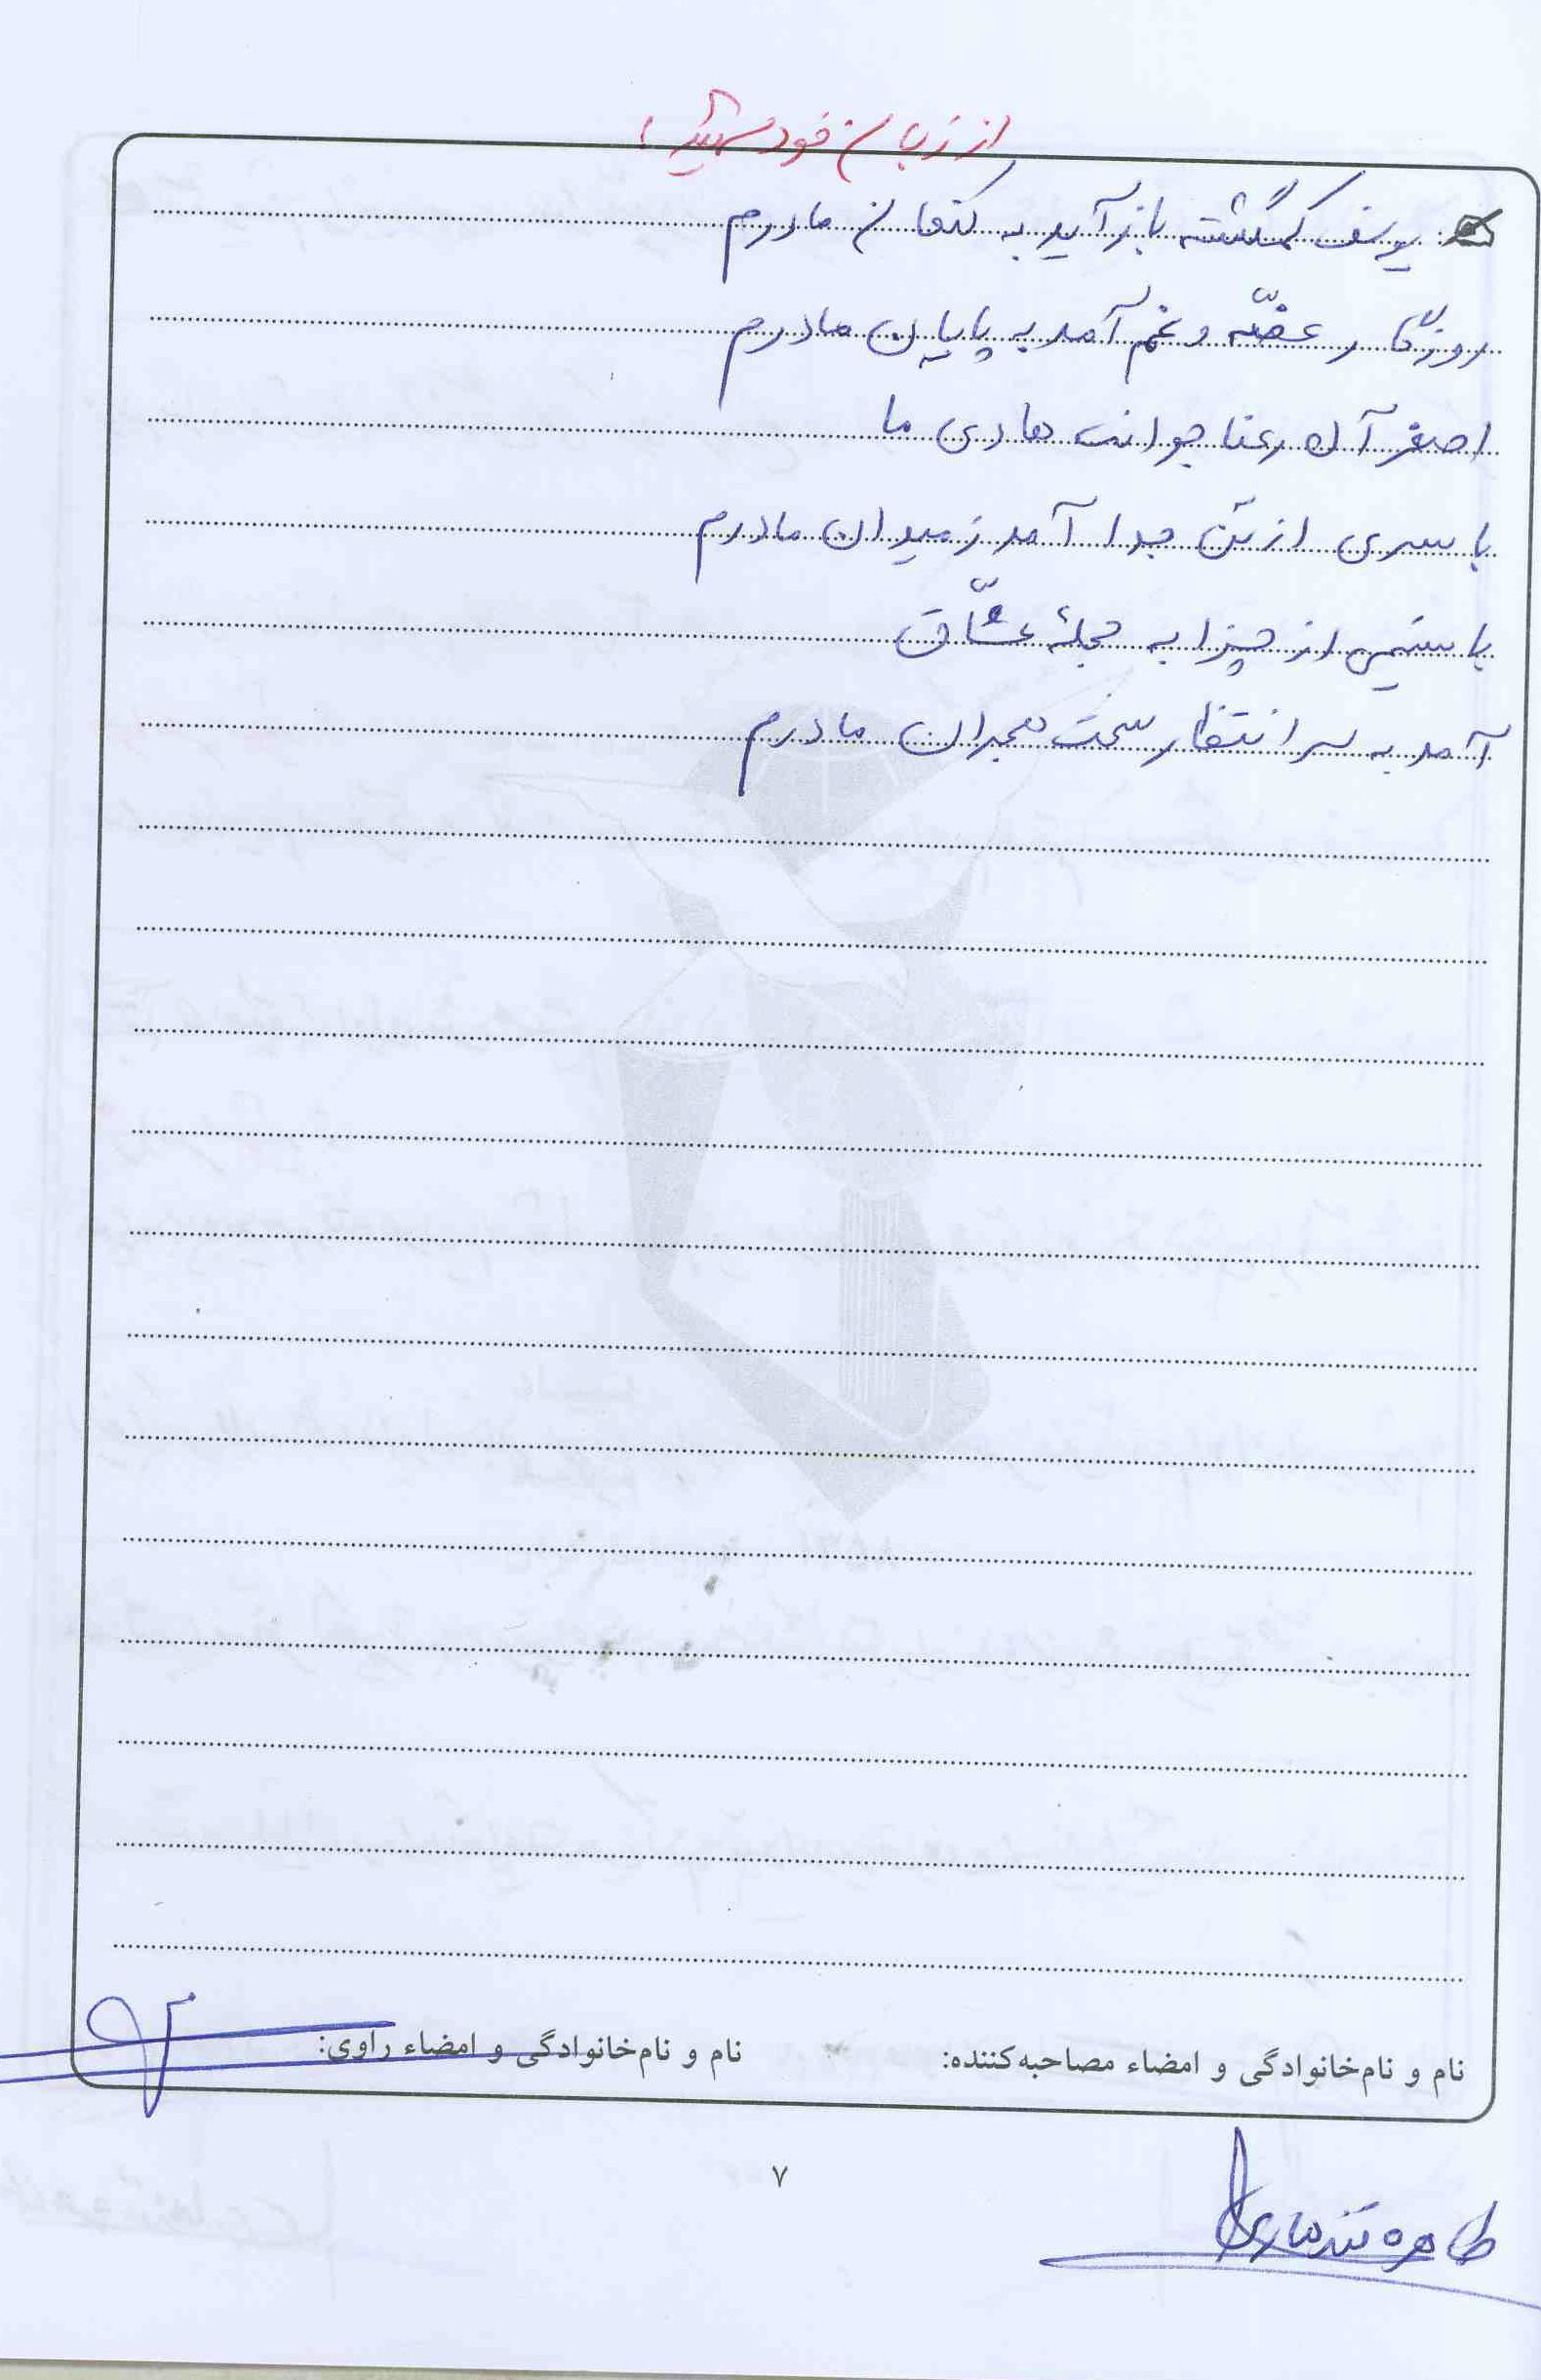 از زبان خود شهید:
یوسف گمگشته بازآید به کنعان مادرم
روزگار غصّه و غم آمد به پایان مادرم
اصغر آن رعنا جوانت هادی ما
با سری از تن جدا آمد ز میدان مادرم
با نسیمی از چزابه حجلهٔ عشّاق
آمد به سر انتظار سخت هجران مادرم
نام و نام‌خانوادگی و امضاء مصاحبه‌کننده: نام و نام‌خانوادگی و امضاء راوی:
۷
طاهره